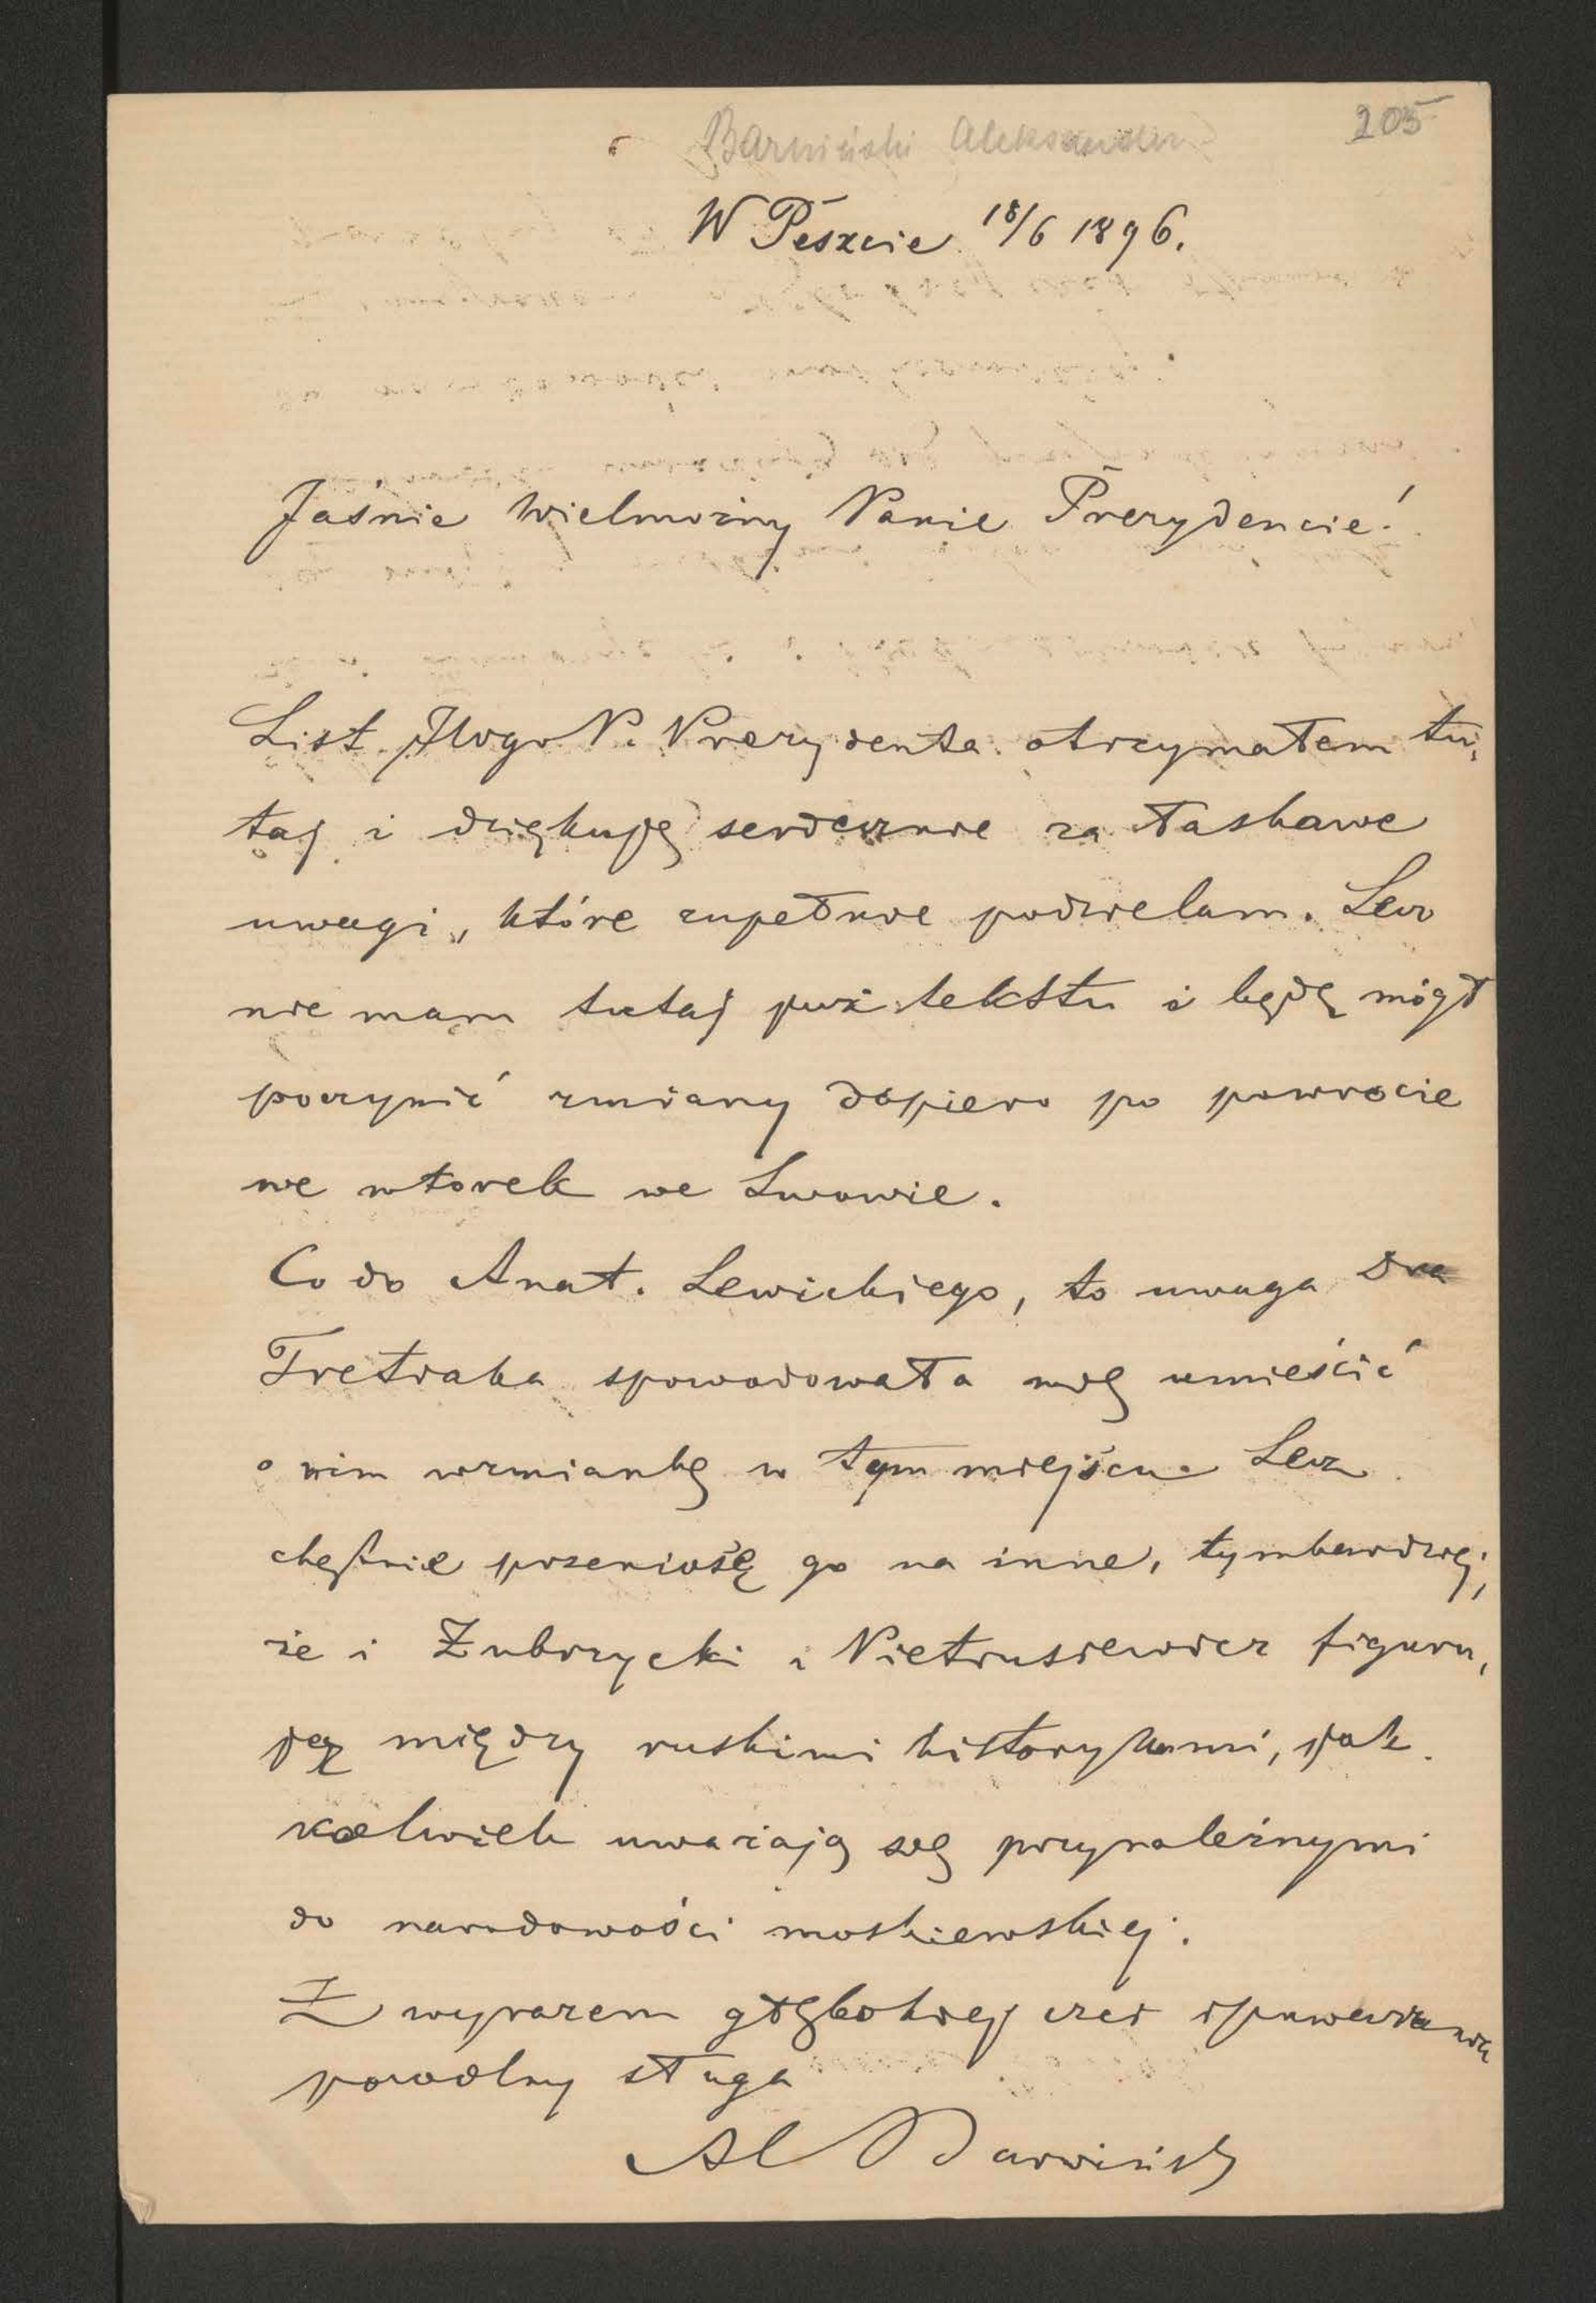 Barwiński Aleksander 205
W Peszcie 18/6 1896.
Jaśnie Wielmożny Panie Prezydencie!
List JWogo P. Prezydenta otrzymałem tu,
taj i dziękuję serdecznie za łaskawe
uwagi, które zupełnie podzielam. Lecz
nie mam tutaj już tekstu i będę mógł
poczynić zmiany dopiero po powrocie
we wtorek we Lwowie.
Co do Anat. Lewickiego, to uwaga Dra
Tretiaka spowodowała mię umieścić
o nim wzmiankę w tym miejscu. Lecz
chętnie przeniosę go na inne, tymbardziej,
że i Zubrzycki i Pietrusiewicz figuru,
ją między ruskimi historykami, jak
kolwiek uważają się przynależnymi
do narodowości moskiewskiej.
Z wyrazem głębokiej czci i poważania
powolny sługa
Al Barwiński